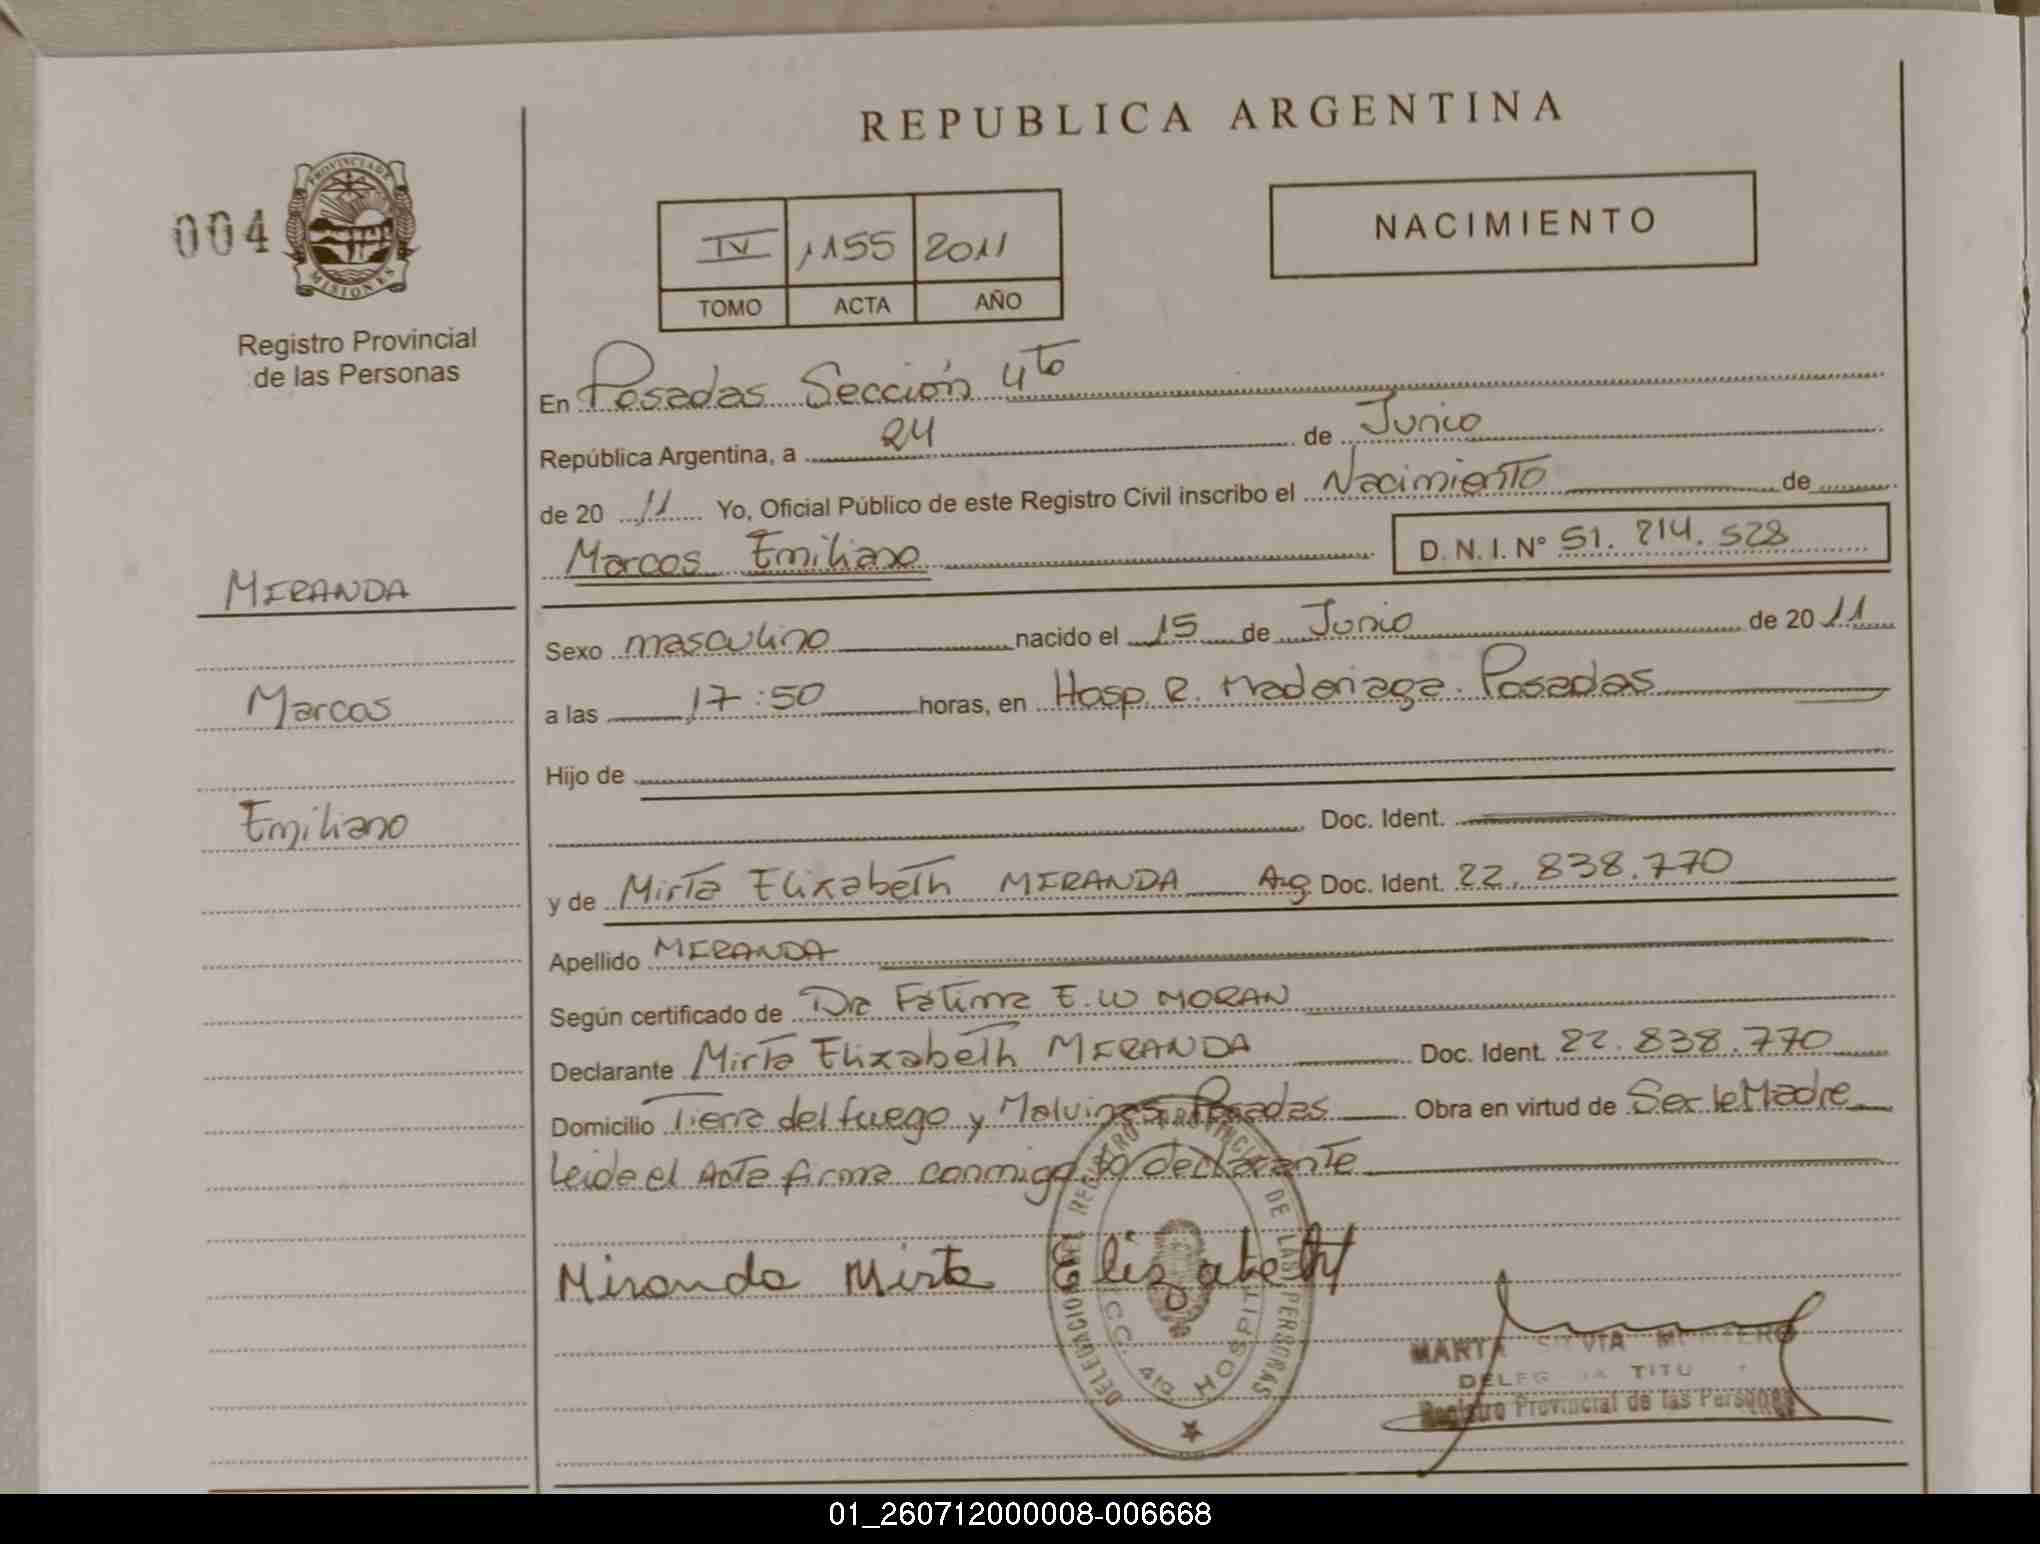 REPUBLICA ARGENTINA
004
PROVINCIA DE
MISIONES
Registro Provincial
de las Personas
IV 1155 2011
TOMO ACTA AÑO
NACIMIENTO
En Posadas Sección 4to
República Argentina, a 24 de Junio
de 20 11 Yo, Oficial Público de este Registro Civil inscribo el Nacimiento de
Marcos Emiliano D. N. I. Nº 51.214.528
MIRANDA
Marcos
Emiliano
Sexo masculino nacido el 15 de Junio de 20 11
a las 17:50 horas, en Hosp. R. Madariaga. Posadas
Hijo de
Doc. Ident.
y de Mirta Elizabeth MIRANDA Arg Doc. Ident. 22.838.770
Apellido MIRANDA
Según certificado de Dra Fátima E. W MORAN
Declarante Mirta Elizabeth MIRANDA Doc. Ident. 22.838.770
Domicilio Tierra del fuego y Malvinas Posadas Obra en virtud de Ser la Madre
Leida el Acta firma conmigo la declarante
Miranda Mirta Elizabeth
DELEGACION DEL REGISTRO PROVINCIAL DE LAS PERSONAS
SECC. 4ta HOSPITAL
MARTA SILVIA MONTERO
DELEGADA TITULAR
Registro Provincial de las Personas
01_260712000008-006668